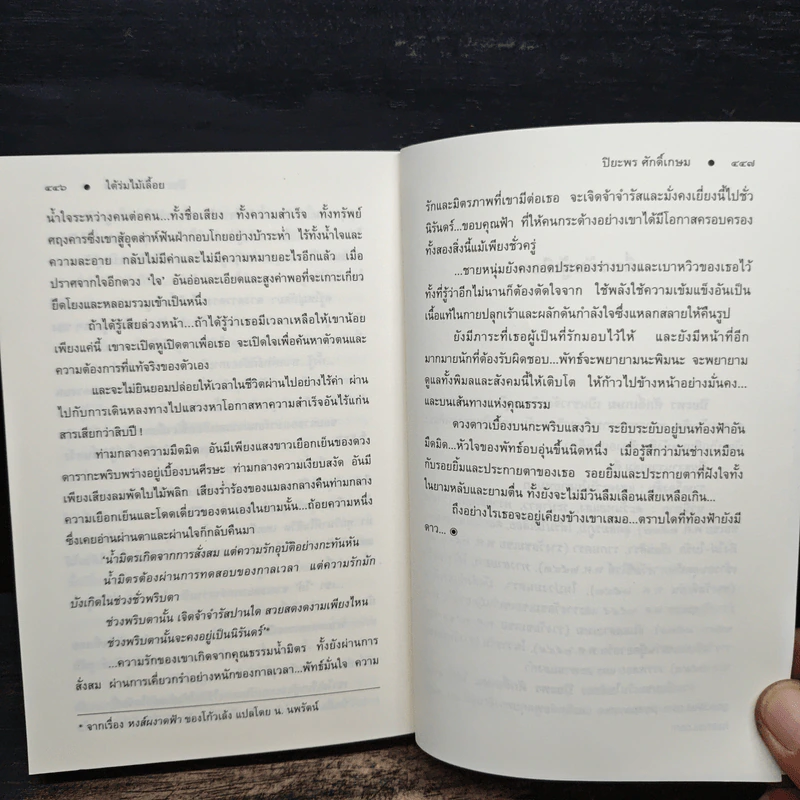 ๔๔๖ ● ใต้ร่มไม้เลื้อย
น้ำใจระหว่างคนต่อคน...ทั้งชื่อเสียง ทั้งความสำเร็จ ทั้งทรัพย์
ศฤงคารซึ่งเขาสู้อุตส่าห์ฟันฝ่ากอบโกยอย่างบ้าระห่ำ ไร้ทั้งน้ำใจและ
ความละอาย กลับไม่มีค่าและไม่มีความหมายอะไรอีกแล้ว เมื่อ
ปราศจากใจอีกดวง 'ใจ' อันอ่อนละเอียดและสูงค่าพอที่จะเกาะเกี่ยว
ยึดโยงและหลอมรวมเข้าเป็นหนึ่ง
ถ้าได้รู้เสียล่วงหน้า...ถ้าได้รู้ว่าเธอมีเวลาเหลือให้เขาน้อย
เพียงแค่นี้ เขาจะเปิดหูเปิดตาเพื่อเธอ จะเปิดใจเพื่อค้นหาตัวตนและ
ความต้องการที่แท้จริงของตัวเอง
และจะไม่ยินยอมปล่อยให้เวลาในชีวิตผ่านไปอย่างไร้ค่า ผ่าน
ไปกับการเดินหลงทางไปแสวงหาโอกาสหาความสำเร็จอันไร้แก่น
สารเสียกว่าสิบปี !
ท่ามกลางความมืดมิด อันมีเพียงแสงขาวเยือกเย็นของดวง
ดารากะพริบพร่างอยู่เบื้องบนศีรษะ ท่ามกลางความเงียบสงัด อันมี
เพียงเสียงลมพัดใบไม้พลิก เสียงร่ำร้องของแมลงกลางคืนท่ามกลาง
ความเยือกเย็นและโดดเดี่ยวของตนเองในยามนั้น...ถ้อยความหนึ่ง
ซึ่งเคยอ่านผ่านตาและผ่านใจก็กลับคืนมา
'น้ำมิตรเกิดจากการสั่งสม แต่ความรักอุบัติอย่างกะทันหัน
น้ำมิตรต้องผ่านการทดสอบของกาลเวลา แต่ความรักมัก
บังเกิดในช่วงชั่วพริบตา
ช่วงพริบตานั้น เจิดจ้าจำรัสปานใด สวยสดงดงามเพียงไหน
ช่วงพริบตานั้นจะคงอยู่เป็นนิรันดร์'*
...ความรักของเขาเกิดจากคุณธรรมน้ำมิตร ทั้งยังผ่านการ
สั่งสม ผ่านการเคี่ยวกรำอย่างหนักของกาลเวลา...พัทธ์มั่นใจ ความ
* จากเรื่อง หงส์ผงาดฟ้า ของโก้วเล้ง แปลโดย น. นพรัตน์
ปิยะพร ศักดิ์เกษม ● ๔๔๗
รักและมิตรภาพที่เขามีต่อเธอ จะเจิดจ้าจำรัสและมั่งคงเยี่ยงนี้ไปชั่ว
นิรันดร์...ขอบคุณฟ้า ที่ให้คนกระด้างอย่างเขาได้มีโอกาสครอบครอง
ทั้งสองสิ่งนี้แม้เพียงชั่วครู่
...ชายหนุ่มยังคงกอดประคองร่างบางและเบาหวิวของเธอไว้
ทั้งที่รู้ว่าอีกไม่นานก็ต้องตัดใจจาก ใช้พลังใช้ความเข้มแข็งอันเป็น
เนื้อแท้ในกายปลุกเร้าและผลักดันกำลังใจซึ่งแหลกสลายให้คืนรูป
ยังมีภาระที่เธอผู้เป็นที่รักมอบไว้ให้ และยังมีหน้าที่อีก
มากมายนักที่ต้องรับผิดชอบ...พัทธ์จะพยายามนะพิมนะ จะพยายาม
ดูแลทั้งพิมลและสังคมนี้ให้เติบโต ให้ก้าวไปข้างหน้าอย่างมั่นคง...
และบนเส้นทางแห่งคุณธรรม
ดวงดาวเบื้องบนกะพริบแสงวิบ ระยิบระยับอยู่บนท้องฟ้าอัน
มืดมิด...หัวใจของพัทธ์อบอุ่นขึ้นนิดหนึ่ง เมื่อรู้สึกว่ามันช่างเหมือน
กับรอยยิ้มและประกายตาของเธอ รอยยิ้มและประกายตาที่ฝังใจทั้ง
ในยามหลับและยามตื่น ทั้งยังจะไม่มีวันลืมเลือนเสียเหลือเกิน...
ถึงอย่างไรเธอจะอยู่เคียงข้างเขาเสมอ...ตราบใดที่ท้องฟ้ายังมี
ดาว... ◉